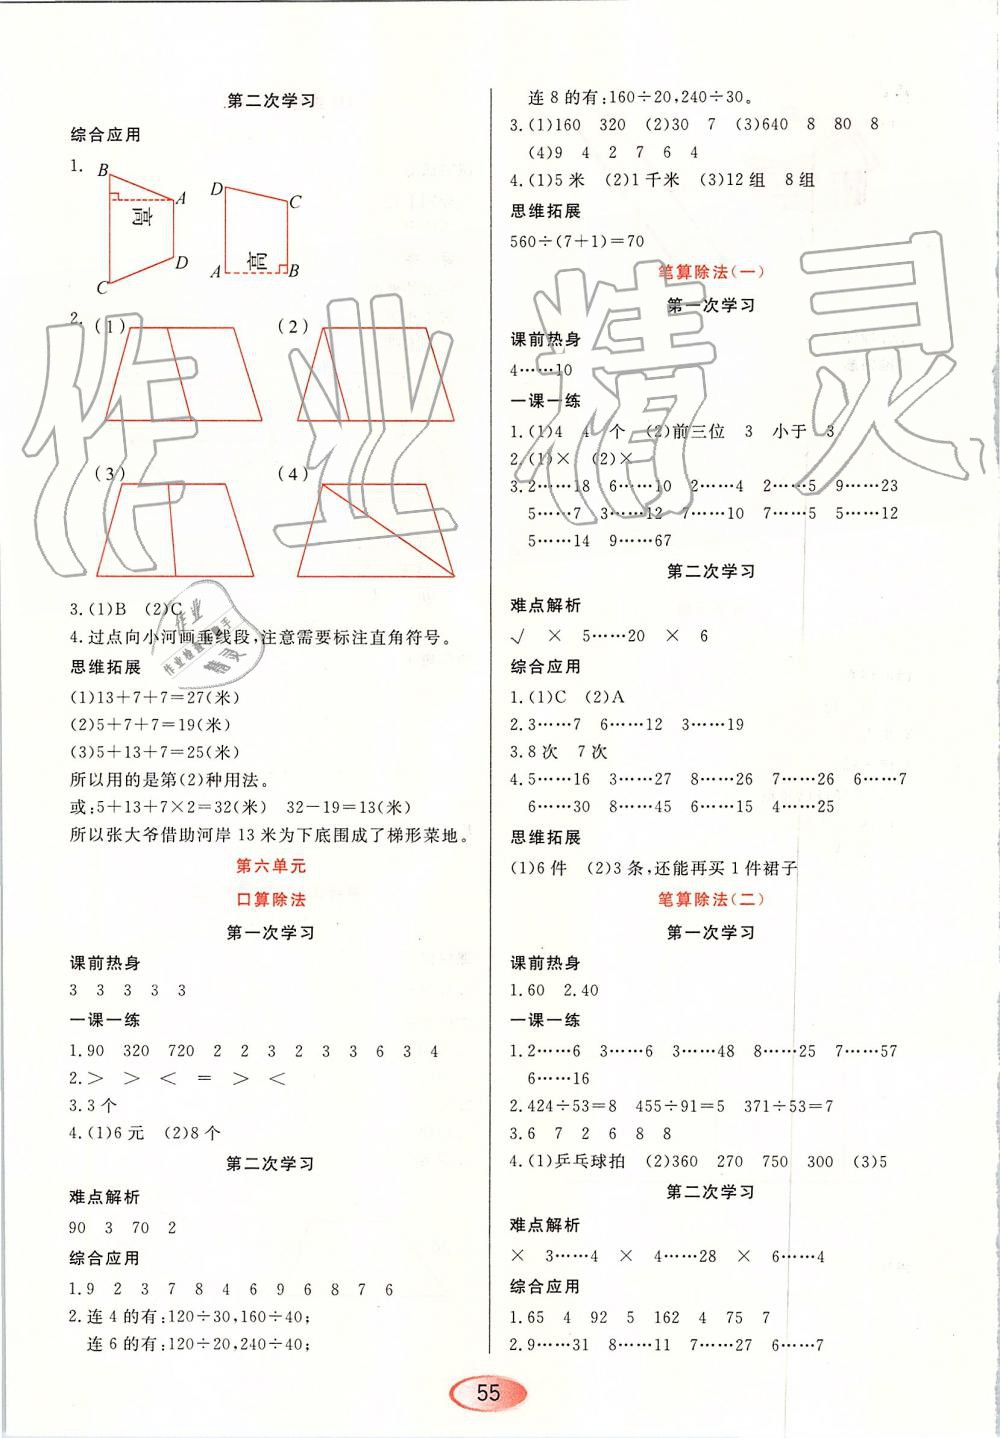 第二次学习
综合应用
1.
B
A
高
D
C
D
C
A
高
B
2.
(1)
(2)
(3)
(4)
3.(1)B (2)C
4.过点向小河画垂线段,注意需要标注直角符号。
思维拓展
(1)13+7+7=27(米)
(2)5+7+7=19(米)
(3)5+13+7=25(米)
所以用的是第(2)种用法。
或:5+13+7×2=32(米) 32-19=13(米)
所以张大爷借助河岸 13 米为下底围成了梯形菜地。
第六单元
口算除法
第一次学习
课前热身
3 3 3 3 3
一课一练
1.90 320 720 2 2 3 2 3 3 6 3 4
2.> > < = > <
3.3 个
4.(1)6 元 (2)8 个
第二次学习
难点解析
90 3 70 2
综合应用
1.9 2 3 7 8 4 6 9 6 8 7 6
2.连 4 的有:120÷30,160÷40;
连 6 的有:120÷20,240÷40;
连 8 的有:160÷20,240÷30。
3.(1)160 320 (2)30 7 (3)640 8 80 8
(4)9 4 2 7 6 4
4.(1)5 米 (2)1 千米 (3)12 组 8 组
思维拓展
560÷(7+1)=70
笔算除法(一)
第一次学习
课前热身
4……10
一课一练
1.(1)4 4 个 (2)前三位 3 小于 3
2.(1)× (2)×
3.2……18 6……10 2……4 2……5 9……23
5……7 3……12 7……10 7……5 5……12
5……14 9……67
第二次学习
难点解析
√ × 5……20 × 6
综合应用
1.(1)C (2)A
2.3……7 6……12 3……19
3.8 次 7 次
4.5……16 3……27 8……26 7……26 6……7
6……30 8……45 6……15 4……25
思维拓展
(1)6 件 (2)3 条,还能再买 1 件裙子
笔算除法(二)
第一次学习
课前热身
1.60 2.40
一课一练
1.2……6 3……6 3……48 8……25 7……57
6……16
2.424÷53=8 455÷91=5 371÷53=7
3.6 7 2 6 8 8
4.(1)乒乓球拍 (2)360 270 750 300 (3)5
第二次学习
难点解析
× 3……4 × 4……28 × 6……4
综合应用
1.65 4 92 5 162 4 75 7
2.9……31 8……11 7……27 6……7
55
作业精灵
作业
作业检查小助手
精灵